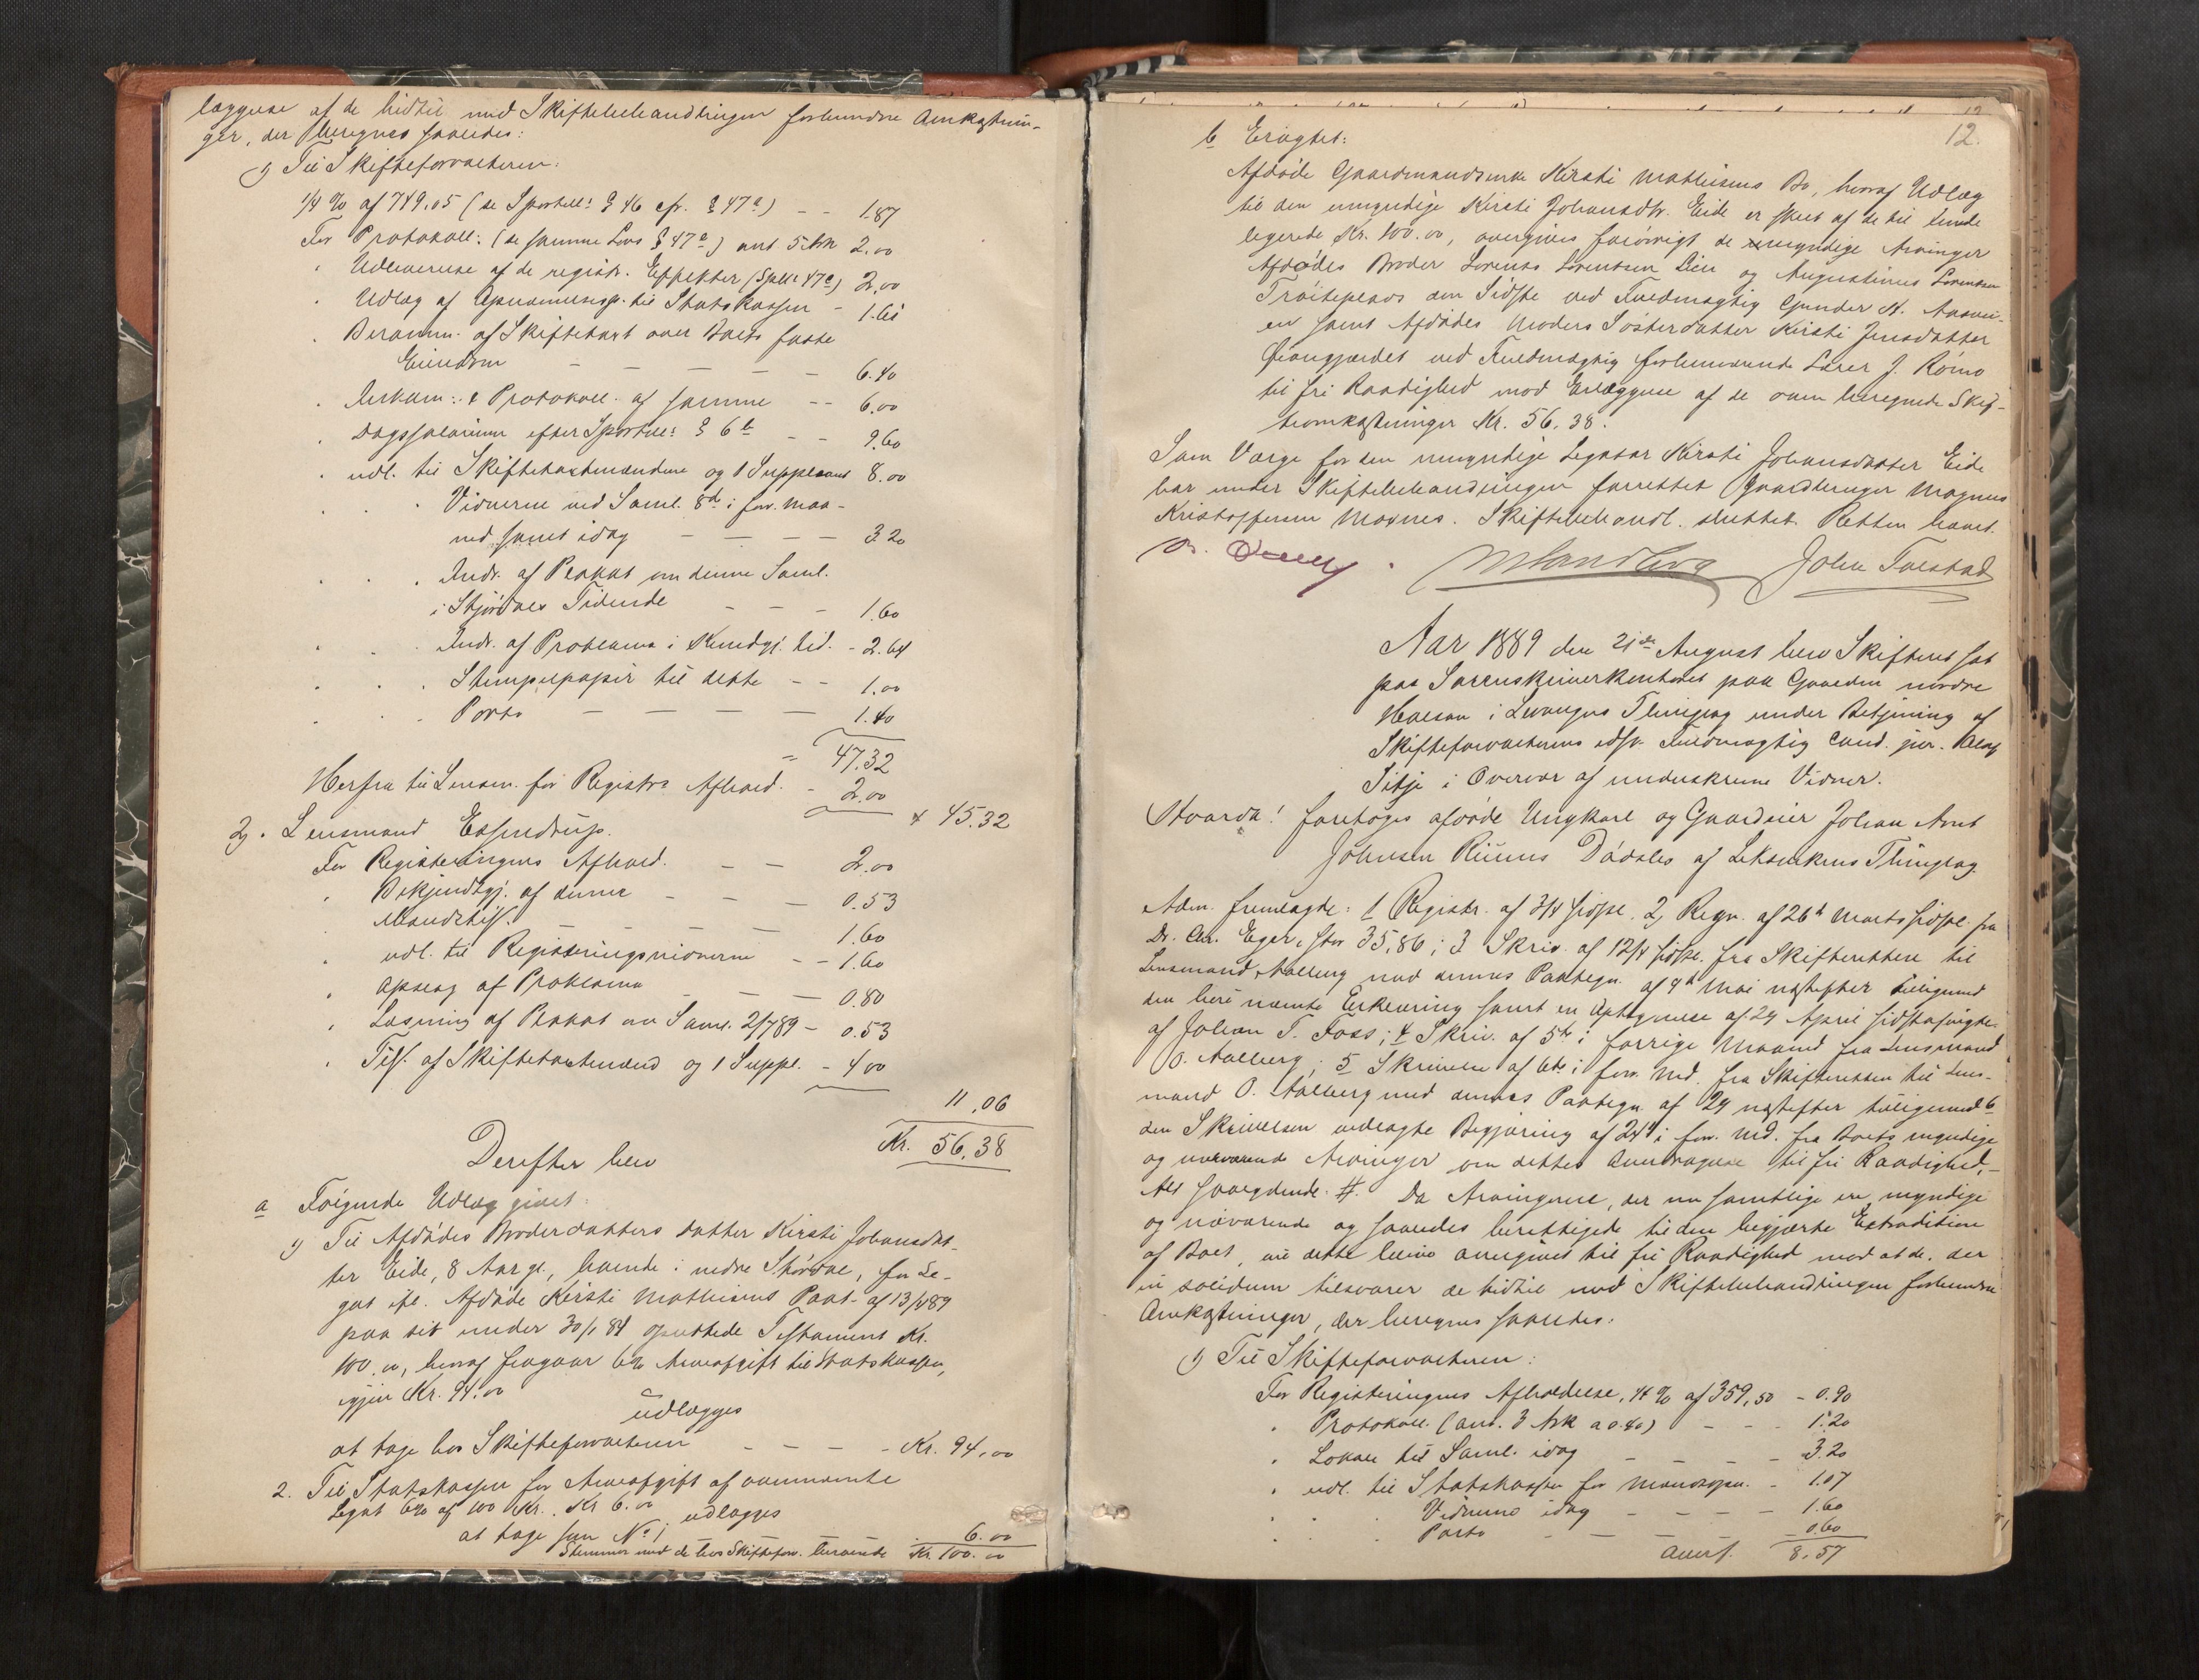 læggelse af de hidtil med Skiftebehandlingen forbundne Omkostnin-
ger, der beregnes saaledes:
1) Til Skifteforvalteren:
1/4 % af 749.05 (se Sportell: § 46 cfr. § 47 a) - - 1.87
For Protokoll: (se samme Lovs § 47 a) ant 5 Ark 2.00
" Udleverelse af de registr. Effekter (Sptl: 47 c) 2.00
" Udlæg af til Statskassen - 1.61
" Beramm. af Skiftetaxt over Boets faste
Eiendom - - - - - 6.40
" & Protokoll. af samme - - 6.00
" Dagssalarium efter Sportell: § 6 b - - 9.60
" udl. til Skiftetaxtmændene og 1 Suppleant 8.00
" " " Vidnerne ved Saml. 8d i forr. Maa-
ned samt idag - - - - 3.20
" " " Indr. af Plakat om denne Saml.
i Stjørdalens Tidende - - - 1.60
" " " Indr. af Proklama i Kundgj. tid. - 2.64
" " " Stempelpapir til dette - - 1.00
" " " Porto - - - - 1.40
= 47.32
Herfra til Lensm. for Registrs Afhold. - 2.00
45.32
2). Lensmand Essendrup.
For Registeringens Afhold. - - 2.00
" Bekjendtgj. af denne - - - 0.53
" - - - - 1.60
" udl. til Registeringsvidnerne - - 1.60
" Opslag af Proklama - - - 0.80
" Læsning af Plakat om Saml. 2/7 89 - 0.53
" Tils. af Skiftetaxtmænd og 1 Suppl. - 4.00
11.06
Kr. 56.38
Derefter blev
a Følgende Udlæg gjort:
1) Til Afdødes Broderdatters Datter Kirsti Johansdat-
ter Eide, 8 Aar gl., boende i nedre Stjørdal, for Le-
gat ifl. Afdøde Kirsti Mathisens Paat. af 13/1 89
paa sit under 30/1 84 oprettede Testament Kr.
100.00, hvoraf fragaar 6% Arveafgift til Statskassen,
igjen Kr. 94.00
udlægges
at tage hos Skifteforvalteren - - - - Kr. 94.00
2. Til Statskassen for Arveafgift af ovennævnte
Legat 6% af 100 Kr. Kr 6.00
udlægges
at tage som No 1 6.00
Stemmer med de hos Skifteforv. beroende Kr. 100.00
12.
b Eragtet:
Afdøde Gaardmandsenke Kirsti Mathisens Bo, hvoraf Udlæg
til den umyndige Kirsti Johansdtr. Eide er skeet af de til hende
legerede Kr. 100.00, overgives forøvrigt de myndige Arvinger
Afdødes Broder Lorents Lorentsen Lien og Augustinus Lorentsen
Trøiteplads den Sidste ved Fuldmægtig Gunder N.
en samt Afdødes Moders Søsterdatter Kirsti Jensdatter
ved Fuldmægtig forhenværende Lærer J. Rømo
til fri Raadighed mod Erlæggelse af de oven beregnede Skif-
teomkostninger Kr. 56.38.
Som Værge for den umyndige Legatar Kirsti Johansdatter Eide
har under Skiftebehandlingen forrettet Gaardbruger Magnus
Kristoffersen Moxnes. Skiftebehandl. sluttet. Retten hævet.
M Sandberg John Tuestad
Aar 1889 den 21de August blev Skifteret sat
paa Sorenskriverkontoret paa Gaarden nordre
Halsan i Levanger Thinglag under Betjening af
Skifteforvalterens edsv. Fuldmægtig cand. jur. Olaf
Sitje i Overvær af underskrevne Vidner.
Hvorda! foretoges afdøde Ungkarl og Gaardeier Johan Arnt
Johnsen Dødsbo af Leksvikens Thinglag.
Adm. fremlagde: 1 Registr. af 3/4 sidstl. 2) Regn. af 26d Marts sidstl. fra
Dr. Chr. Eger, stor 35.86; 3 Skriv. af 12/4 sidstl. fra Skifteretten til
Lensmand Aalberg med dennes Paategn. af 4d Mai næstefter tilligemed
den heri nævnte Erklæring samt en Optegnelse af 24 April sidstafvigte
af Johan T. Foss; 4 Skriv. af 5te i forrige Maaned fra Lensmand
O. Aalberg; 5 Skrivelse af 6te i forr. Md. fra Skifteretten til Lens-
mand O. Aalberg med dennes Paategn af 24 næstefter tilligemed 6
den Skrivelsen vedlagte Begjæring af 24d i forr. Md. fra Boets myndige
og nærværende Arvinger om dettes Overdragelse til fri Raadighed.-
Alt saalydende: #. Da Arvingerne, der nu samtlige ere myndige
og nærværende og saaledes berettigede til den begjærte Extradition
af Boet, vil dette blive overgivet til fri Raadighed mod at de der
in solidum tilsvarer de hidtil med Skiftebehandlingen forbundne
Omkostninger, der beregnes saaledes:
1) Til Skifteforvalteren:
For Registeringens Afholdelse, 1/4 % af 359,50 - 0.90
" Protokoll. (ant. 3 Ark a 0.40) - - 1.20
" Lokale til Saml. idag - - - 3.20
" udl. til Statskassen for - 1.07
" " " Vidnerne idag - - - 1.60
" " " Porto - - - - 0.60
Overf. 8.57